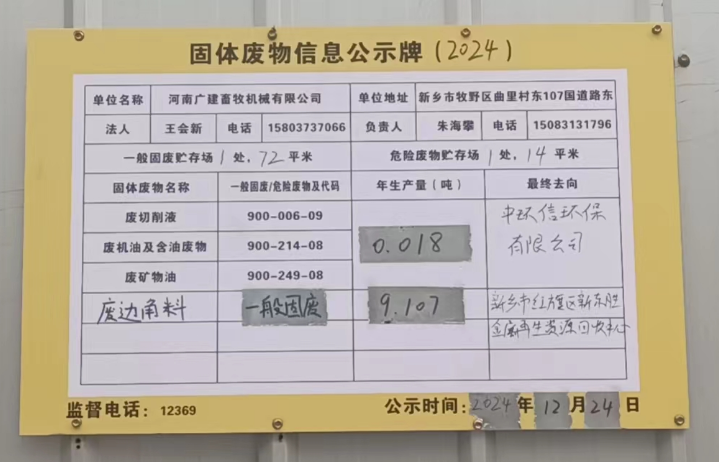 固体废物信息公示牌(2024)
单位名称 河南广建畜牧机械有限公司 单位地址 新乡市牧野区曲里村东107国道路东
法人 王会新 电话 15803737066 负责人 朱海攀 电话 15083131796
一般固废贮存场1处，72平米 危险废物贮存场1处，14平米
固体废物名称 一般固废/危险废物及代码 年生产量（吨） 最终去向
废切削液 900-006-09
废机油及含油废物 900-214-08 0.018 中环信环保有限公司
废矿物油 900-249-08
废边角料 一般固废 9.107 新乡市红旗区新东胜
金属再生资源回收
监督电话：12369 公示时间：2024年12月24日